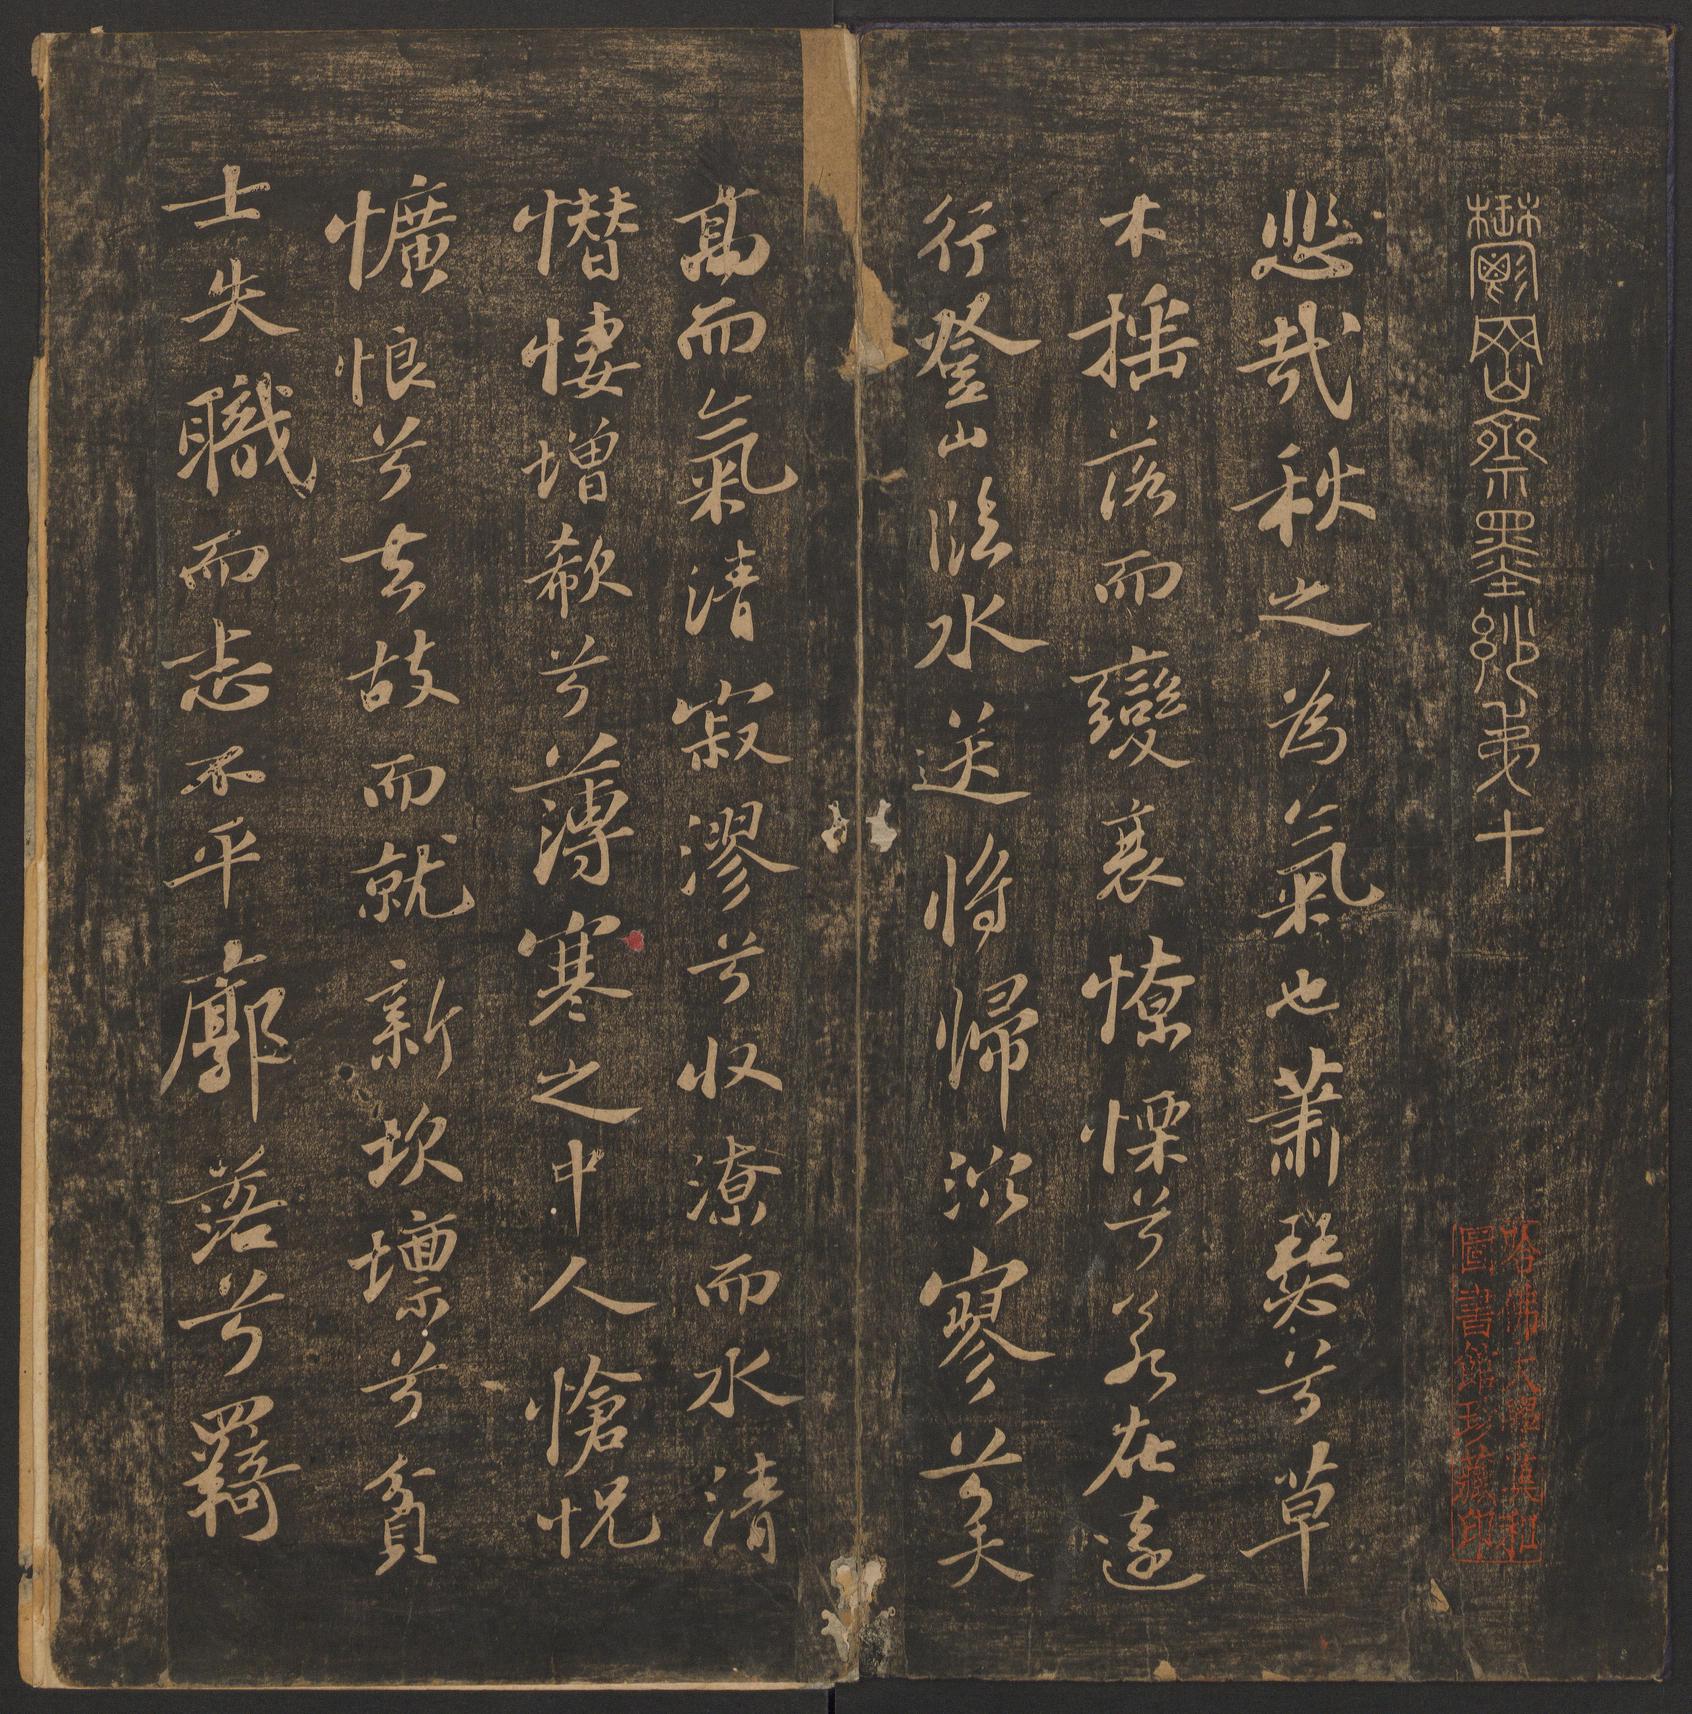 鬱岡齋墨妙弟十
哈佛大學漢和
圖書館珍藏印
悲哉秋之為氣也蕭瑟兮草
木搖落而變衰憭慄兮若在遠
行登山臨水送將歸泬寥兮天
高而氣清寂漻兮收潦而水清
憯悽增欷兮薄寒之中人愴怳
懭悢兮去故而就新坎壈兮貧
士失職而志不平廓落兮羇